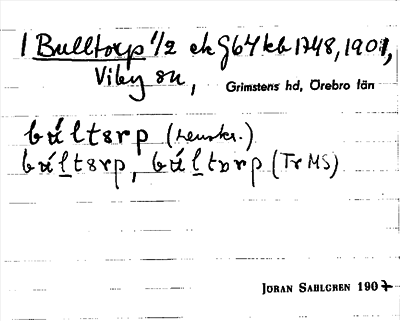 1 Bulltorp 1/2 ek G64 kb 1748, 1901,
Viby sn,
Grimstens hd, Örebro län
búltsrp (Lenskr.)
búltsrp, búltɒrp (Tr MS)
JÖRAN SAHLGREN 1907